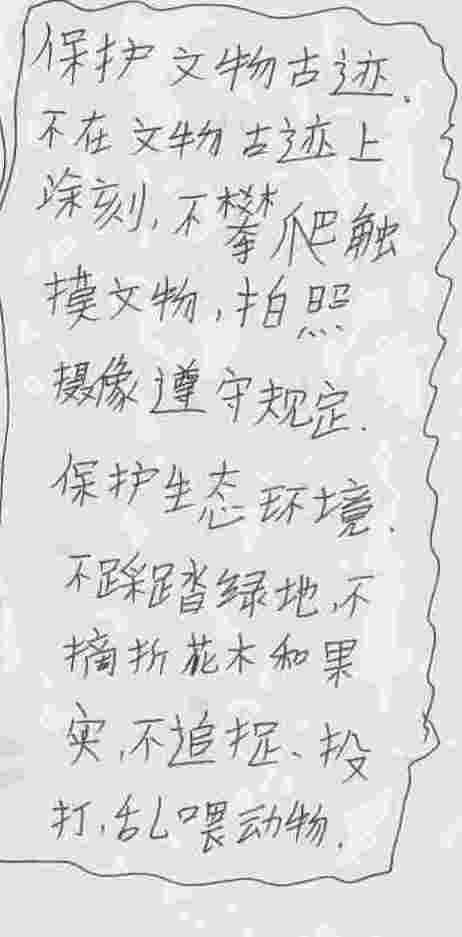 保护文物古迹.
不在文物古迹上
涂刻,不攀爬触
摸文物,拍照
摄像遵守规定.
保护生态环境.
不踩踏绿地,不
摘折花木和果
实,不追捉、投
打,乱喂动物.